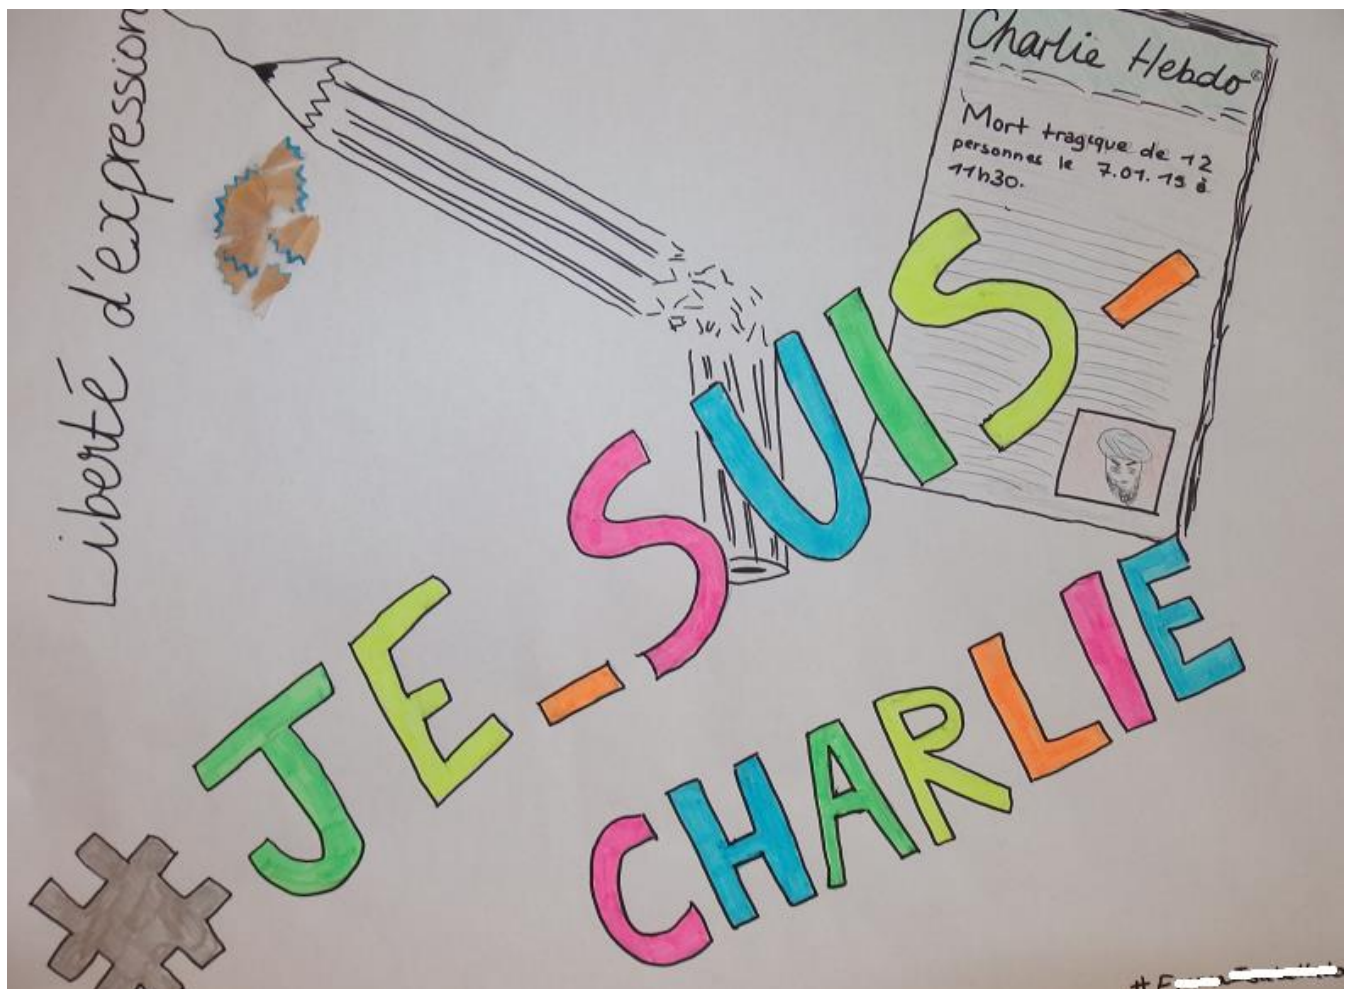 Liberté d'expression
Charlie Hebdo
Mort tragique de 12
personnes le 7.01.15 à
11h30.
#JE-SUIS-
CHARLIE